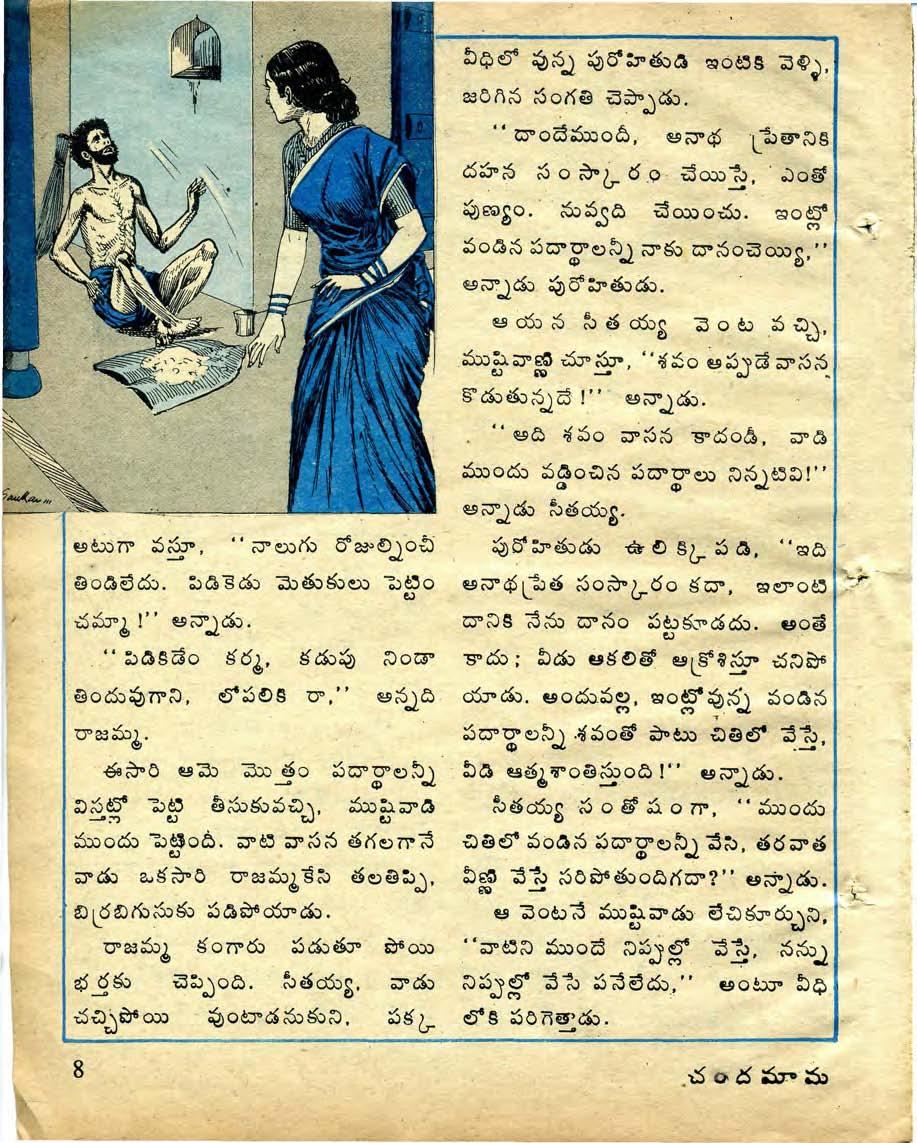 Sankar...
అటుగా వస్తూ, "నాలుగు రోజుల్నించీ
తిండిలేదు. పిడికెడు మెతుకులు పెట్టిం
చమ్మా!" అన్నాడు.
"పిడికిడేం కర్మ, కడుపు నిండా
తిందువుగాని, లోపలికి రా," అన్నది
రాజమ్మ.
ఈసారి ఆమె మొత్తం పదార్థాలన్నీ
విస్తట్లో పెట్టి తీసుకువచ్చి, ముష్టివాడి
ముందు పెట్టింది. వాటి వాసన తగలగానే
వాడు ఒకసారి రాజమ్మకేసి తలతిప్పి,
బిర్రబిగుసుకు పడిపోయాడు.
రాజమ్మ కంగారు పడుతూ పోయి
భర్తకు చెప్పింది. సీతయ్య, వాడు
చచ్చిపోయి వుంటాడనుకుని, పక్క
వీధిలో వున్న పురోహితుడి ఇంటికి వెళ్ళి,
జరిగిన సంగతి చెప్పాడు.
"దాందేముందీ, అనాథ ప్రేతానికి
దహన సంస్కారం చేయిస్తే, ఎంతో
పుణ్యం. నువ్వది చేయించు. ఇంట్లో
వండిన పదార్థాలన్నీ నాకు దానంచెయ్యి,"
అన్నాడు పురోహితుడు.
ఆయన సీతయ్య వెంట వచ్చి,
ముష్టివాణ్ణి చూస్తూ, "శవం అప్పుడే వాసన
కొడుతున్నదే!" అన్నాడు.
"అది శవం వాసన కాదండీ, వాడి
ముందు వడ్డించిన పదార్థాలు నిన్నటివి!"
అన్నాడు సీతయ్య.
పురోహితుడు ఉలిక్కిపడి, "ఇది
అనాథప్రేత సంస్కారం కదా, ఇలాంటి
దానికి నేను దానం పట్టకూడదు. అంతే
కాదు; వీడు ఆకలితో ఆక్రోశిస్తూ చనిపో
యాడు. అందువల్ల, ఇంట్లోవున్న వండిన
పదార్థాలన్నీ శవంతో పాటు చితిలో వేస్తే,
వీడి ఆత్మశాంతిస్తుంది!" అన్నాడు.
సీతయ్య సంతోషంగా, "ముందు
చితిలో వండిన పదార్థాలన్నీ వేసి, తరవాత
వీణ్ణి వేస్తే సరిపోతుందిగదా?" అన్నాడు.
ఆ వెంటనే ముష్టివాడు లేచికూర్చుని,
"వాటిని ముందే నిప్పుల్లో వేస్తే, నన్ను
నిప్పుల్లో వేసే పనేలేదు," అంటూ వీధి
లోకి పరిగెత్తాడు.
8
చందమామ